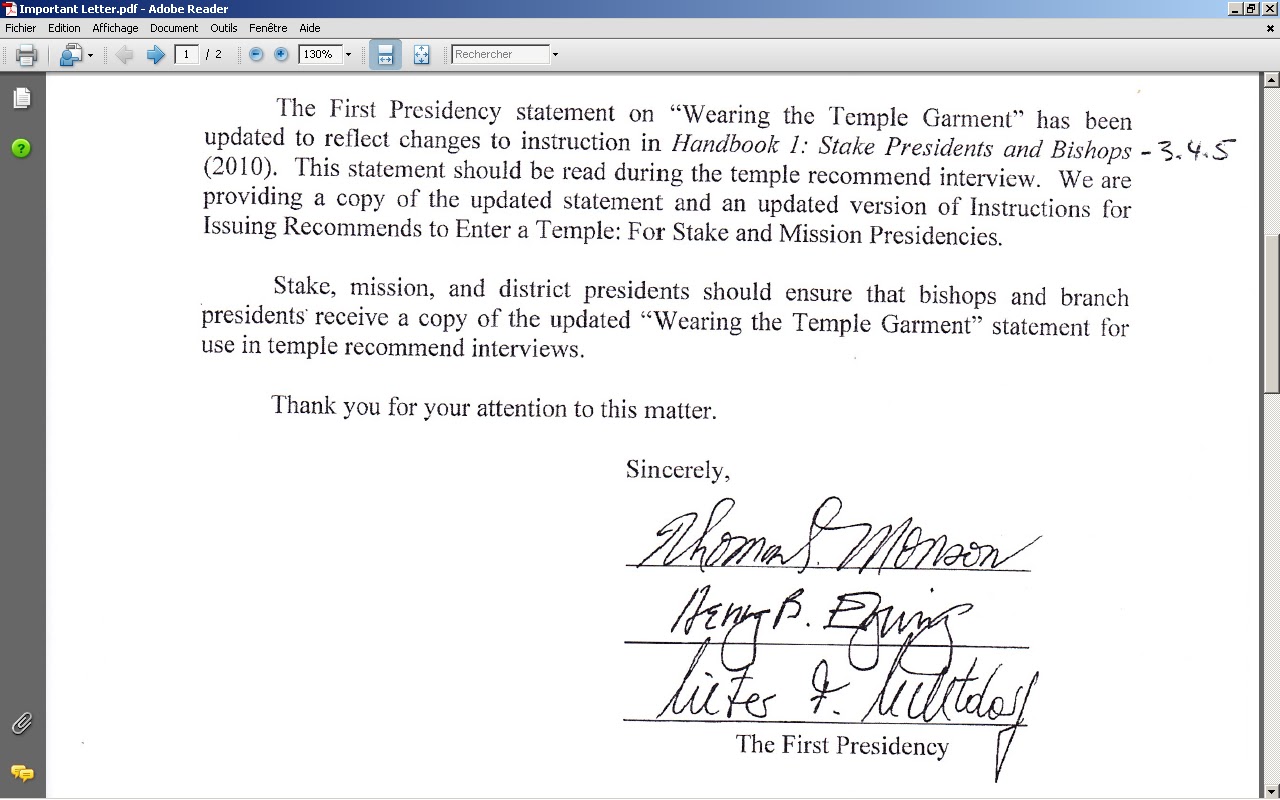 Important Letter.pdf - Adobe Reader
Fichier Edition Affichage Document Outils Fenêtre Aide
1 / 2 130% Rechercher
The First Presidency statement on “Wearing the Temple Garment” has been
updated to reflect changes to instruction in Handbook 1: Stake Presidents and Bishops - 3.4.5
(2010). This statement should be read during the temple recommend interview. We are
providing a copy of the updated statement and an updated version of Instructions for
Issuing Recommends to Enter a Temple: For Stake and Mission Presidencies.
Stake, mission, and district presidents should ensure that bishops and branch
presidents receive a copy of the updated “Wearing the Temple Garment” statement for
use in temple recommend interviews.
Thank you for your attention to this matter.
Sincerely,
Thomas S. Monson
Henry B. Eyring
Dieter F. Uchtdorf
The First Presidency